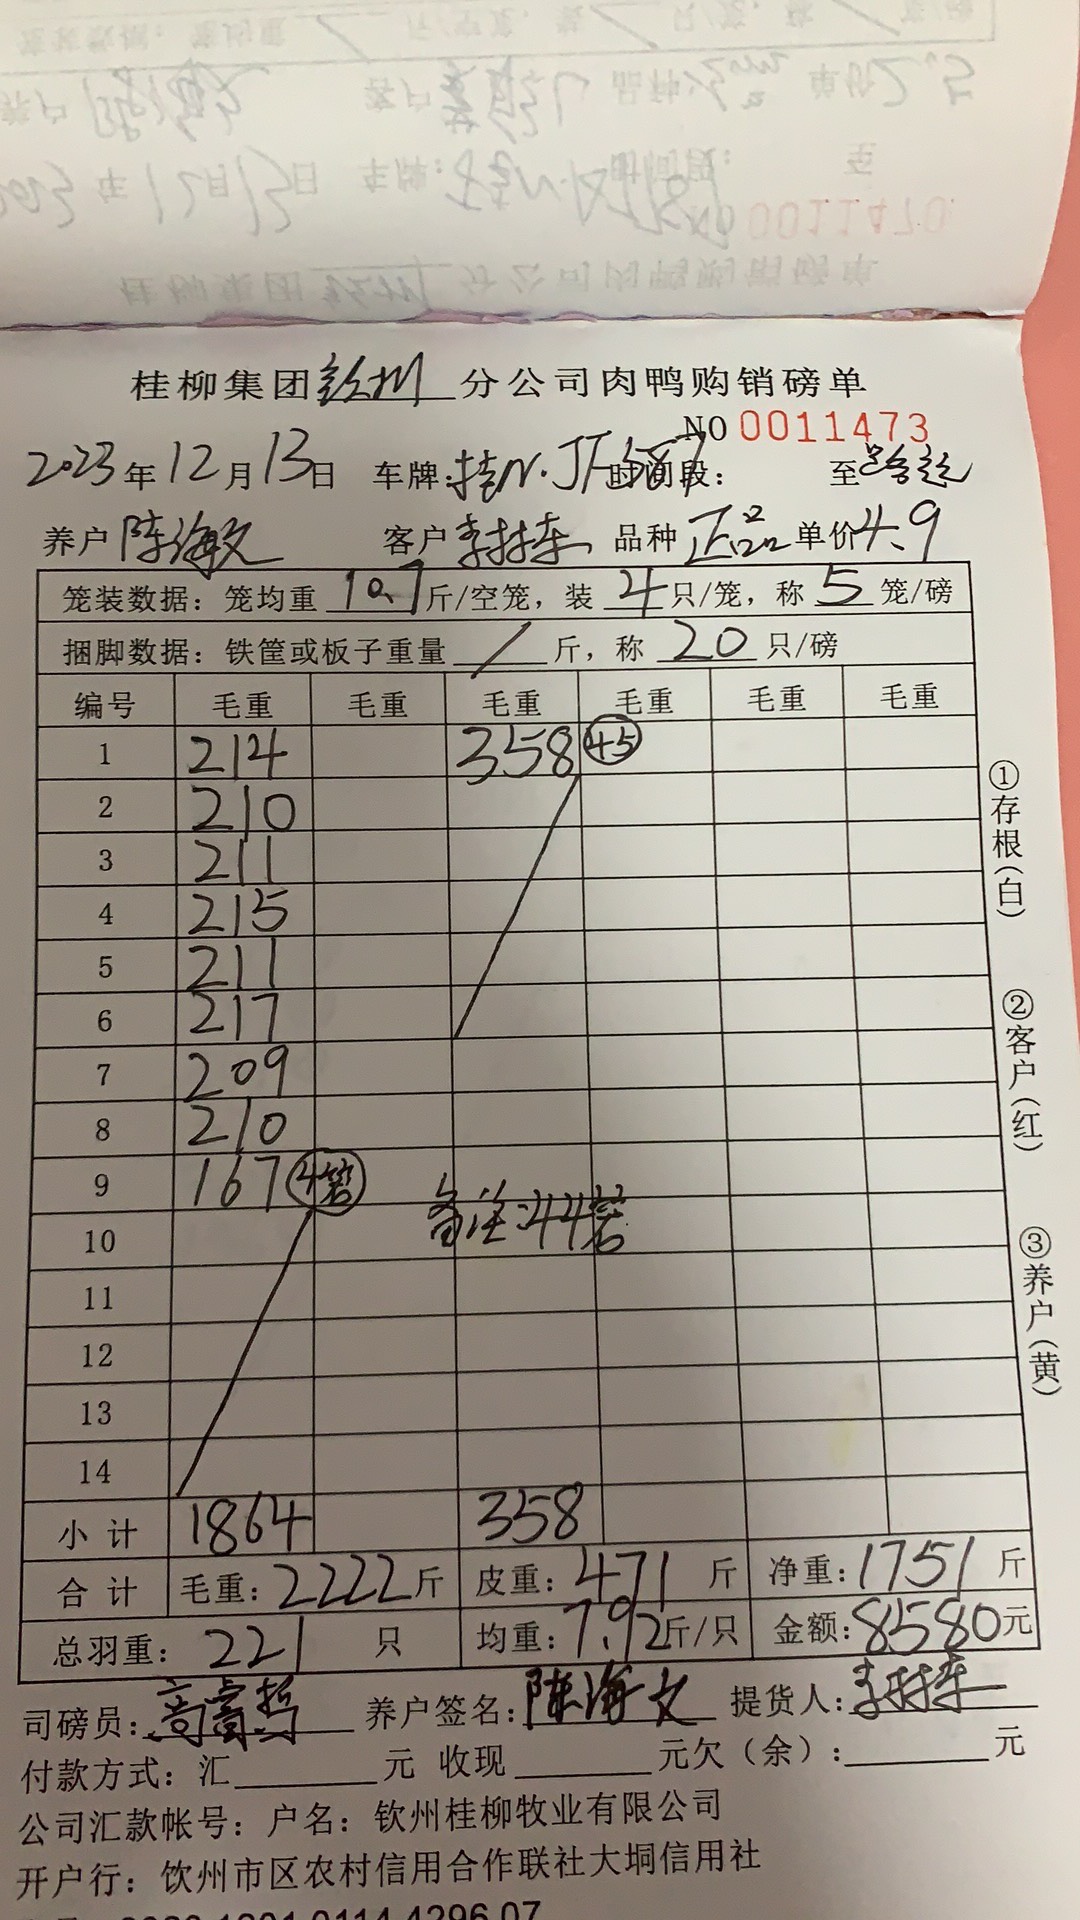 桂柳集团钦州分公司肉鸭购销磅单
NO 0011473
2023年12月13日 车牌:桂N·JF587 时间段: 至
养户 陈海文 客户 李林东 品种 正品 单价4.9
笼装数据: 笼均重 10.7 斤/空笼, 装 4 只/笼, 称 5 笼/磅
捆脚数据: 铁筐或板子重量 / 斤, 称 20 只/磅
编号 毛重 毛重 毛重 毛重 毛重 毛重
1 214 358 45
2 210
3 211
4 215
5 211
6 217
7 209
8 210
9 167 4笼
备注:44笼
10
11
12
13
14
小计 1864 358
合计 毛重: 2222 斤 皮重: 471 斤 净重: 1751 斤
总羽重: 221 只 均重: 7.92 斤/只 金额: 8580 元
司磅员: 高睿哲 养户签名: 陈海文 提货人: 李林东
付款方式: 汇 元 收现 元欠(余): 元
公司汇款帐号: 户名: 钦州桂柳牧业有限公司
开户行: 钦州市区农村信用合作联社大垌信用社
①存根(白)
②客户(红)
③养户(黄)